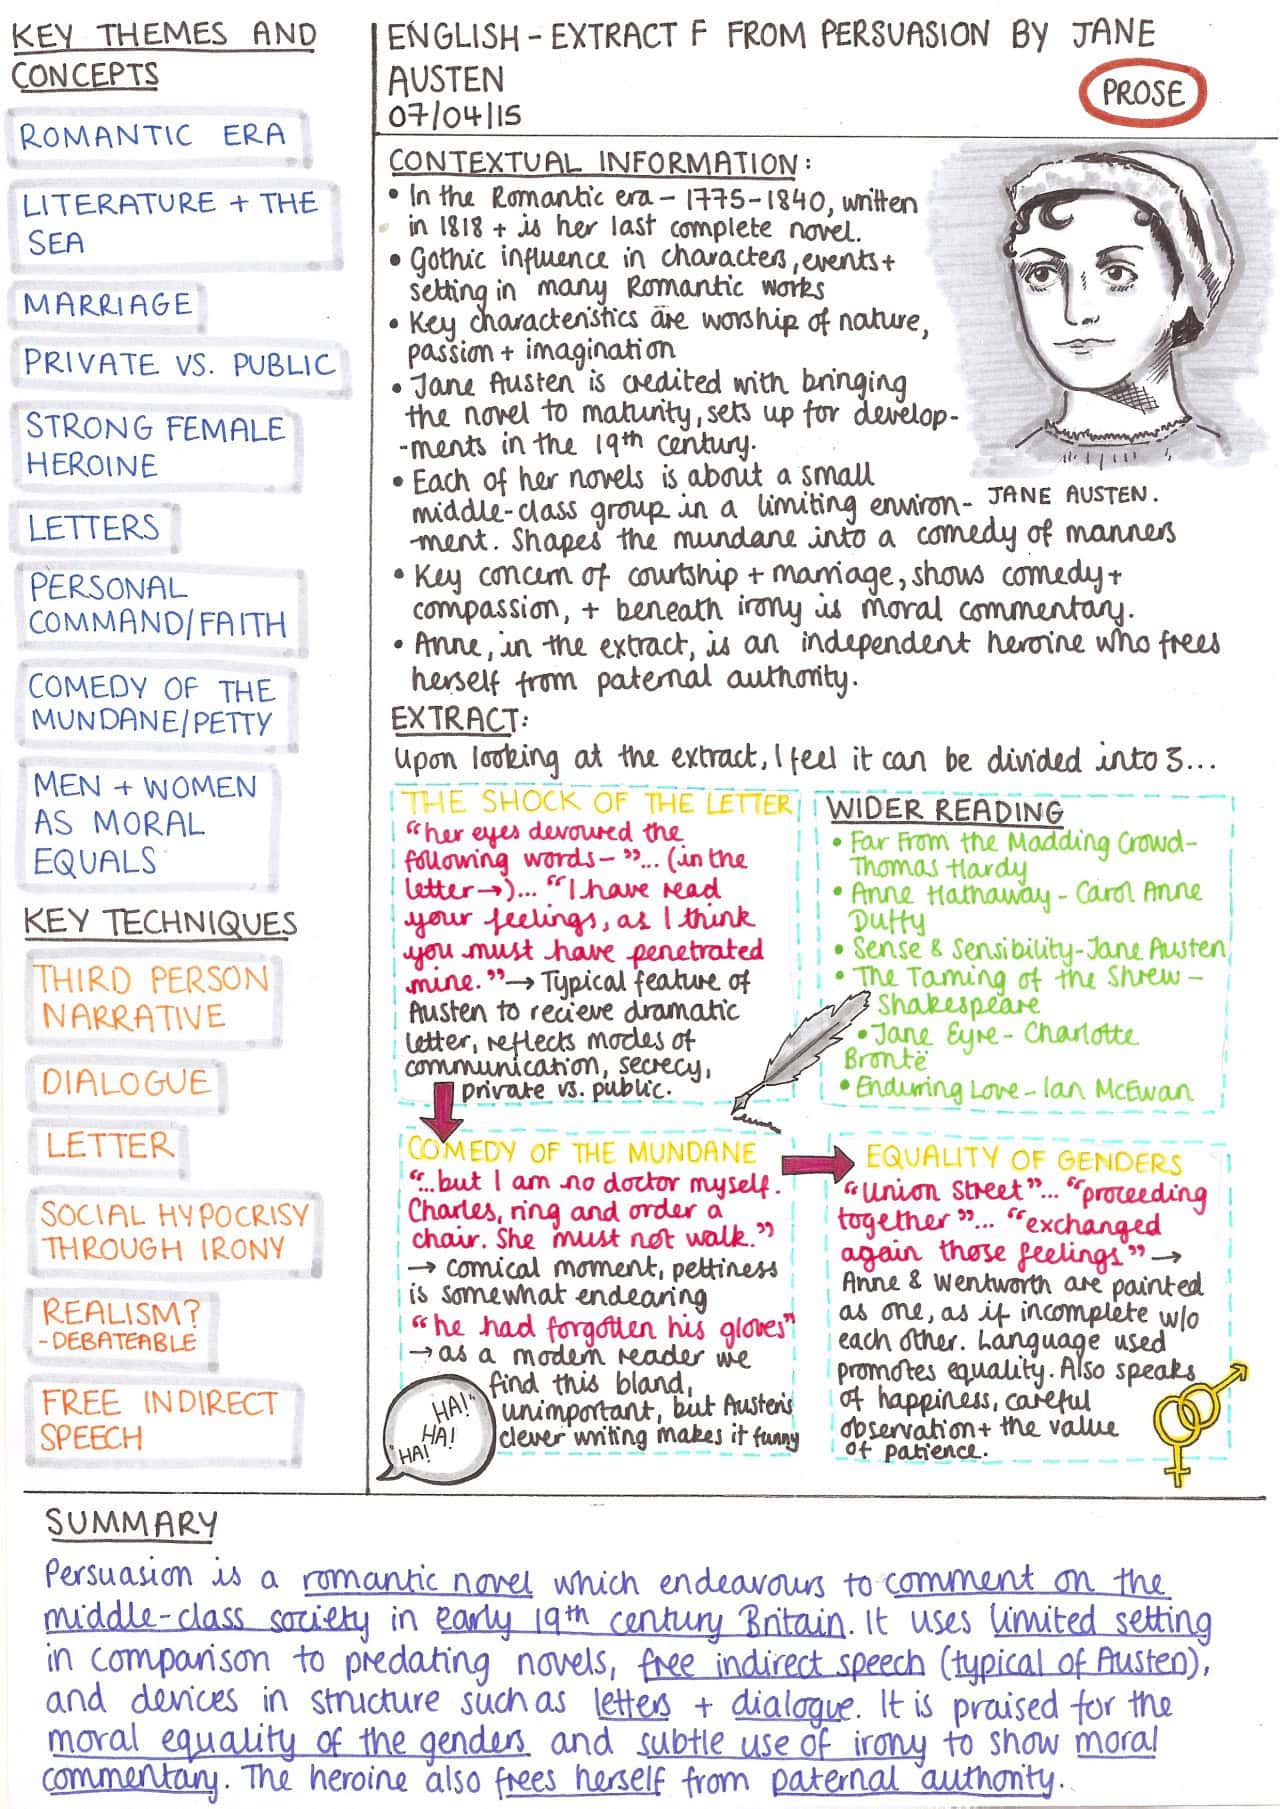 KEY THEMES AND
CONCEPTS
ROMANTIC ERA
LITERATURE + THE
SEA
MARRIAGE
PRIVATE VS. PUBLIC
STRONG FEMALE
HEROINE
LETTERS
PERSONAL
COMMAND/FAITH
COMEDY OF THE
MUNDANE/PETTY
MEN + WOMEN
AS MORAL
EQUALS
KEY TECHNIQUES
THIRD PERSON
NARRATIVE
DIALOGUE
LETTER
SOCIAL HYPOCRISY
THROUGH IRONY
REALISM?
-DEBATEABLE
FREE INDIRECT
SPEECH
ENGLISH - EXTRACT F FROM PERSUASION BY JANE
AUSTEN
PROSE
07/04/15
CONTEXTUAL INFORMATION:
• In the Romantic era - 1775-1840, written
in 1818 + is her last complete novel.
• Gothic influence in characters, events +
setting in many Romantic works
• Key characteristics are worship of nature,
passion + imagination
• Jane Austen is credited with bringing
the novel to maturity, sets up for develop-
-ments in the 19th century.
• Each of her novels is about a small
middle-class group in a limiting environ-
-ment. Shapes the mundane into a comedy of manners
JANE AUSTEN.
• Key concern of courtship + marriage, shows comedy +
compassion, + beneath irony is moral commentary.
• Anne, in the extract, is an independent heroine who frees
herself from paternal authority.
EXTRACT:
Upon looking at the extract, I feel it can be divided into 3...
THE SHOCK OF THE LETTER
"her eyes devoured the
following words-"... (in the
letter→)... "I have read
your feelings, as I think
you must have penetrated
mine."→ Typical feature of
Austen to recieve dramatic
letter, reflects modes of
communication, secrecy,
private vs. public.
WIDER READING
• Far From the Madding Crowd-
Thomas Hardy
• Anne Hathaway - Carol Anne
Duffy
• Sense & Sensibility-Jane Austen
• The Taming of the Shrew -
Shakespeare
• Jane Eyre - Charlotte
Brontë
• Enduring Love - Ian McEwan
COMEDY OF THE MUNDANE
"...but I am no doctor myself.
Charles, ring and order a
chair. She must not walk."
→ comical moment, pettiness
is somewhat endearing
"he had forgotten his gloves"
→ as a modern reader we
find this bland,
unimportant, but Austen's
clever writing makes it funny
HA!
HA!
HA!
EQUALITY OF GENDERS
"Union Street"... "proceeding
together"... "exchanged
again those feelings" →
Anne & Wentworth are painted
as one, as if incomplete w/o
each other. Language used
promotes equality. Also speaks
of happiness, careful
observation + the value
of patience.
SUMMARY
Persuasion is a romantic novel which endeavours to comment on the
middle-class society in early 19th century Britain. It uses limited setting
in comparison to predating novels, free indirect speech (typical of Austen),
and devices in structure such as letters + dialogue. It is praised for the
moral equality of the genders and subtle use of irony to show moral
commentary. The heroine also frees herself from paternal authority.